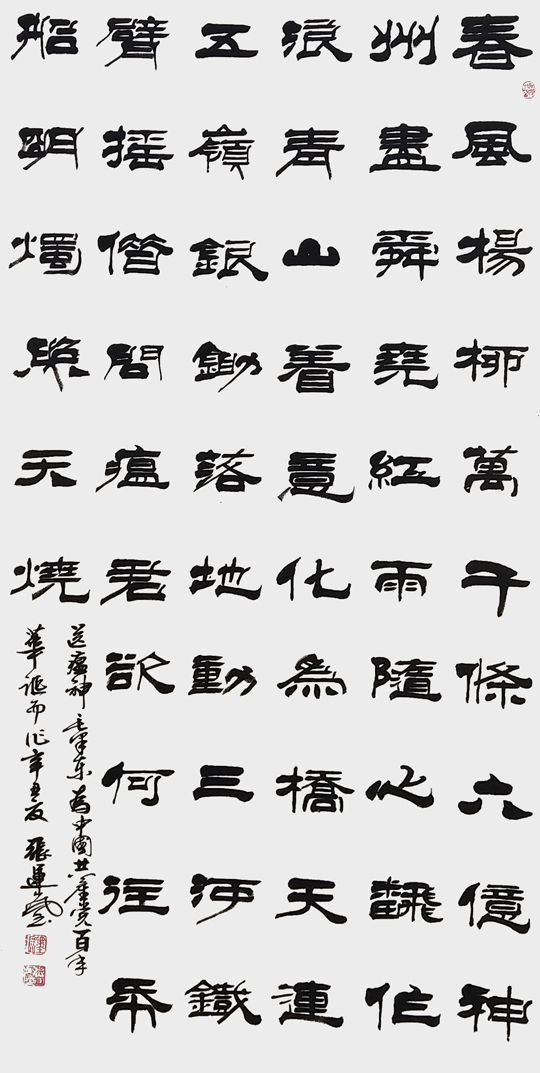 春風楊柳萬千條六億神
州盡舜堯紅雨隨心翻作
浪青山着意化為橋天連
五嶺銀鋤落地動三河鐵
臂摇借問瘟君欲何往帋
船明燭照天燒
送瘟神毛澤东為中國共産党百年
華誕而作辛丑夏張運